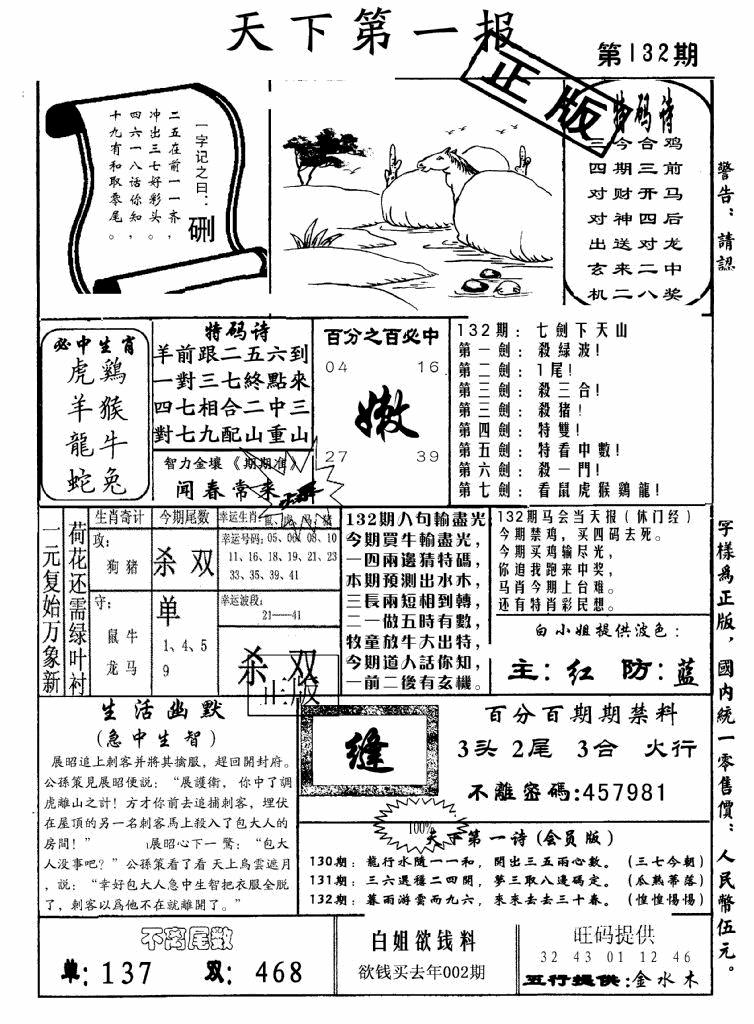 天下第一报
第132期
正版
一字记之曰：
硎
二五在前一一齐，
冲出三七好彩头。
四六一八话你知，
十九有和取零尾。
特码诗
三四对对出玄机
今期财神送来二
合三开四对二八
鸡前马后龙中奖
警告：請認
字樣為正版，國内統一零售價：人民幣伍元。
必中生肖
虎鷄
羊猴
龍牛
蛇兔
特码诗
羊前跟二五六到
一對三七終點來
四七相合二中三
對七九配山重山
智力金壤《期期准》
闻春常来
百分之百必中
04 16
嫩
27 39
132期：七劍下天山
第一劍：殺緑波！
第二劍：1尾！
第三劍：殺三合！
第三劍：殺猪！
第四劍：特雙！
第五劍：特看中數！
第六劍：殺一門！
第七劍：看鼠虎猴鷄龍！
一元复始万象新
荷花还需绿叶衬
生肖奇计
攻：
狗猪
守：
鼠牛
龙马
今期尾数
杀双
单
1、4、5
9
幸运生肖：鼠、虎、马、猪
幸运号码：05、06、08、10
11、16、18、19、21、23
33、35、39、41
幸运波段：
21——41
杀双
正版
132期八句輸盡光
今期買牛輸盡光，
一四兩邊猜特碼，
本期預測出水木，
三長兩短相到轉，
二一做五時有數，
牧童放牛大出特，
今期道人話你知，
一前二後有玄機。
132期马会当天报（休门经）
今期禁鸡，买四码去死。
今期买鸡输尽光，
你追我跑来中奖，
马肖今期上台难。
还有特肖彩民想。
白小姐提供波色：
主：红 防：蓝
生活幽默
（急中生智）
展昭追上刺客并將其擒服，趕回開封府。
公孫策見展昭便説：“展護衛，你中了調
虎離山之計！方才你前去追捕刺客，埋伏
在屋頂的另一名刺客馬上殺入了包大人的
房間！” 展昭心下一驚：“包大
人没事吧？”公孫策看了看天上烏雲遮月
，説：“幸好包大人急中生智把衣服全脱
了，刺客以爲他不在就離開了。”
縫
百分百期期禁料
3头 2尾 3合 火行
不離密碼:457981
100%
天下第一诗(会员版)
130期：龍行水隨一一和，開出三五兩心數。（三七今朝）
131期：三六選種二四開，夢三取八邊碼定。（瓜熟蒂落）
132期：暮雨游雲而九六，來來去去三十春。（惶惶惕惕）
不离尾数
单:137 双:468
白姐欲钱料
欲钱买去年002期
旺码提供
32 43 01 12 46
五行提供:金水木